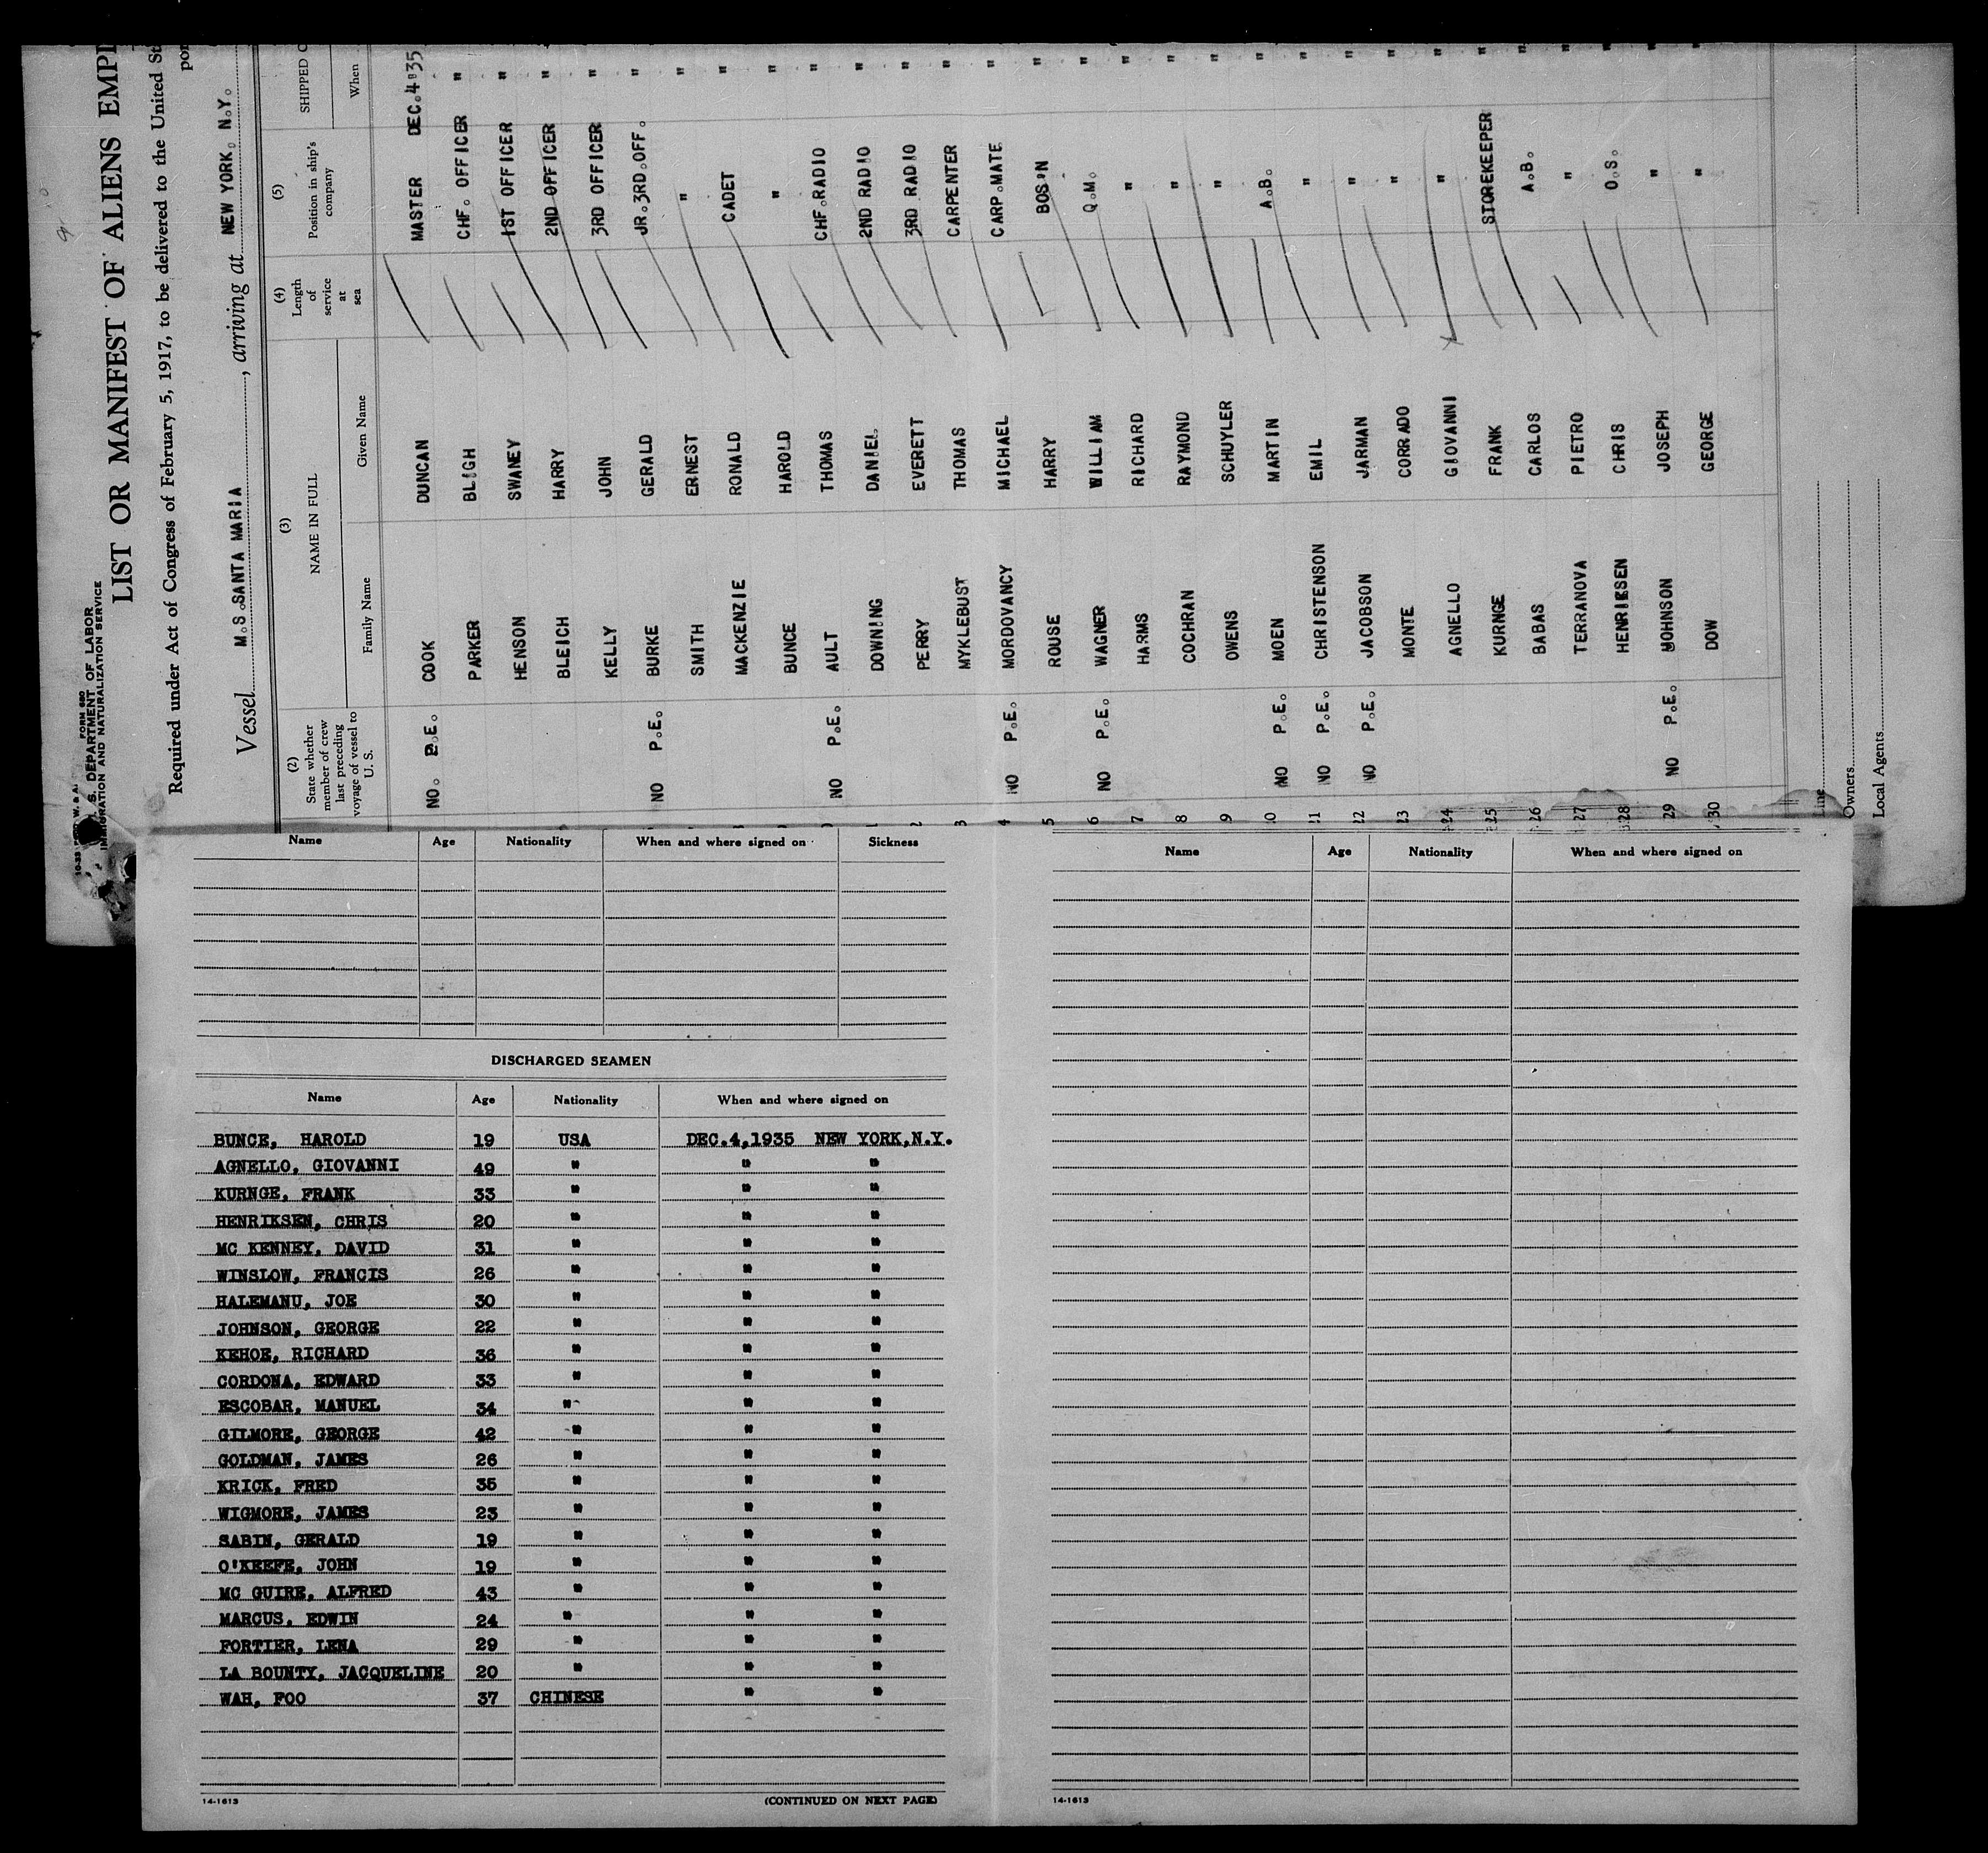 FORM 680
U. S. DEPARTMENT OF LABOR
IMMIGRATION AND NATURALIZATION SERVICE
LIST OR MANIFEST OF ALIENS EMPL
Required under Act of Congress of February 5, 1917, to be delivered to the United St
por
Vessel M.S.SANTA MARIA, arriving at NEW YORK. N.Y.
(2) State whether member of crew last preceding voyage of vessel to U. S.
(3) NAME IN FULL
Family Name Given Name
(4) Length of service at sea
(5) Position in ship's company
SHIPPED
When
NO. P.E. COOK DUNCAN MASTER DEC.4"35
PARKER BLIGH CHF. OFFICER "
HENSON SWANEY 1ST OFFICER "
BLEICH HARRY 2ND OFFICER "
KELLY JOHN 3RD OFFICER "
NO P.E. BURKE GERALD JR.3RD.OFF. "
SMITH ERNEST " "
MACKENZIE RONALD CADET "
BUNCE HAROLD " "
NO P.E. AULT THOMAS CHF.RADIO "
DOWNING DANIEL 2ND RADIO "
2 PERRY EVERETT 3RD RADIO "
3 MYKLEBUST THOMAS CARPENTER "
4 NO P.E. MORDOVANCY MICHAEL CARP.MATE "
5 ROUSE HARRY BOS'N "
6 NO P.E. WAGNER WILLIAM Q.M. "
7 HARMS RICHARD " "
8 COCHRAN RAYMOND " "
9 OWENS SCHUYLER " "
20 NO P.E. MOEN MARTIN A.B. "
21 NO P.E. CHRISTENSON EMIL " "
22 NO P.E. JACOBSON JARMAN " "
23 MONTE CORRADO " "
24 AGNELLO GIOVANNI " "
25 KURNGE FRANK STOREKEEPER "
26 BABAS CARLOS A.B. "
27 TERRANOVA PIETRO " "
28 HENRIKSEN CHRIS O.S. "
29 NO P.E. JOHNSON JOSEPH " "
30 DOW GEORGE " "
Line
Owners
Local Agents
Name Age Nationality When and where signed on Sickness
DISCHARGED SEAMEN
Name Age Nationality When and where signed on
BUNCE, HAROLD 19 USA DEC.4,1935 NEW YORK,N.Y.
AGNELLO, GIOVANNI 49 " " "
KURNGE, FRANK 33 " " "
HENRIKSEN, CHRIS 20 " " "
MC KENNEY, DAVID 31 " " "
WINSLOW, FRANCIS 26 " " "
HALEMANU, JOE 30 " " "
JOHNSON, GEORGE 22 " " "
KEHOE, RICHARD 36 " " "
CORDONA, EDWARD 33 " " "
ESCOBAR, MANUEL 34 " " "
GILMORE, GEORGE 42 " " "
GOLDMAN, JAMES 26 " " "
KRICK, FRED 35 " " "
WIGMORE, JAMES 23 " " "
SABIN, GERALD 19 " " "
O'KEEFE, JOHN 19 " " "
MC GUIRE, ALFRED 43 " " "
MARCUS, EDWIN 24 " " "
FORTIER, LENA 29 " " "
LA BOUNTY, JACQUELINE 20 " " "
WAH, FOO 37 CHINESE " "
14-1613 (CONTINUED ON NEXT PAGE)
Name Age Nationality When and where signed on
14-1613